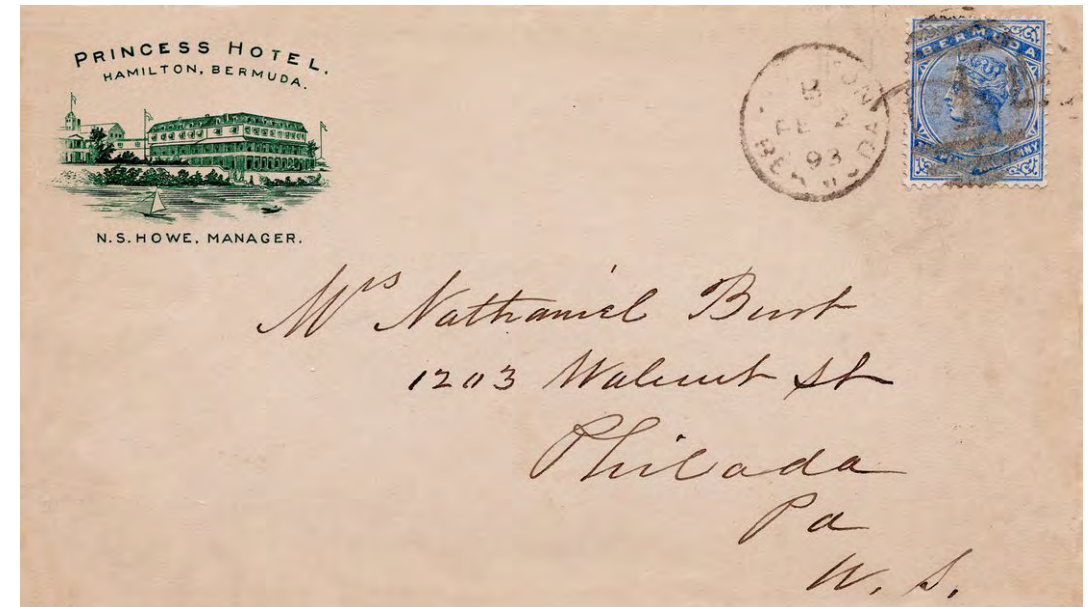 PRINCESS HOTEL.
HAMILTON, BERMUDA.
N. S. HOWE, MANAGER.
B
2
93
BERMUDA
BERMUDA
Mrs Nathaniel Burt
1203 Walnut St
Philada
Pa
U. S.